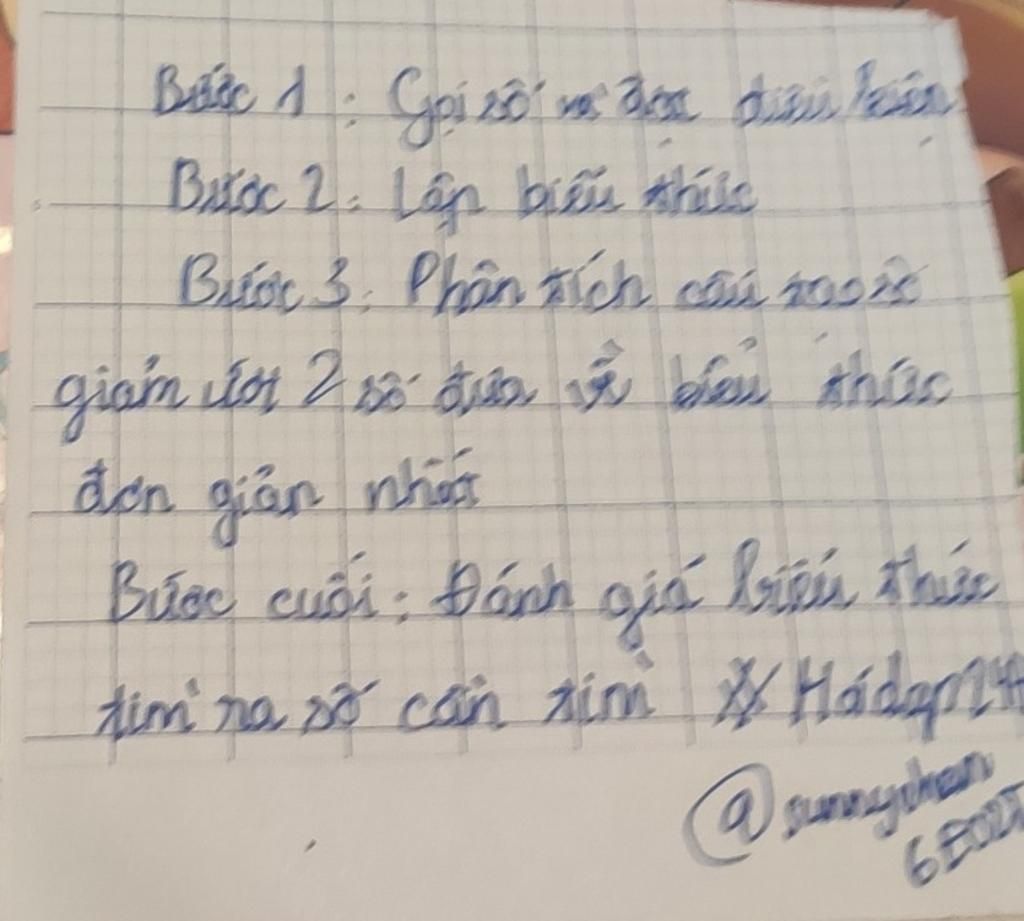 Bước 1 : Gọi số và đặt điều kiện
Bước 2 : Lập biểu thức
Bước 3 : Phân tích cấu tạo số
giảm với 2 số đưa về biểu thức
đơn giản nhất
Bước cuối : Đánh giá biểu thức
tìm ra số cần tìm Hỏidap24
@sunnychan